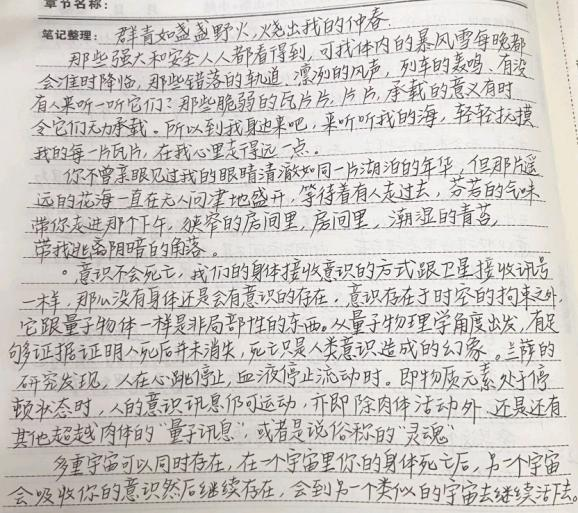 章节名称：
笔记整理： 群青如盏盏野火，烧出我的仲春
那些强大和安全人人都看得到，可我体内的暴风雪每晚都
会准时降临，那些错落的轨道，凛冽的风声，列车的轰鸣，有没
有人来听一听它们？那些脆弱的瓦片片，片片，承载的意义有时
令它们无力承载。所以到我身边来吧，来听听我的海，轻轻抚摸
我的每一片瓦片，在我心里走得远一点。
你不曾亲眼见过我的眼睛清澈如同一片湖泊的年华，但那片遥
远的花海一直在无人问津地盛开，等待着有人走过去，芬芳的气味
带你走进那个下午，狭窄的房间里，房间里，潮湿的青苔，
带我逃离阴暗的角落。
。意识不会死亡，我们的身体接收意识的方式跟卫星接收讯号
一样，那么没有身体还是会有意识的存在，意识存在于时空的拘束之外，
它跟量子物体一样是非局部性的东西。从量子物理学角度出发，有足
够多证据证明人死后并未消失，死亡只是人类意识造成的幻象。兰萨的
研究发现，人在心跳停止，血液停止流动时。即物质元素处于停
顿状态时，人的意识讯息仍可运动，亦即除肉体活动外，还是还有
其他超越肉体的“量子讯息”，或者是说俗称的“灵魂”
多重宇宙可以同时存在，在一个宇宙里你的身体死亡后，另一个宇宙
会吸收你的意识然后继续存在，会到另一个类似的宇宙去继续活下去。